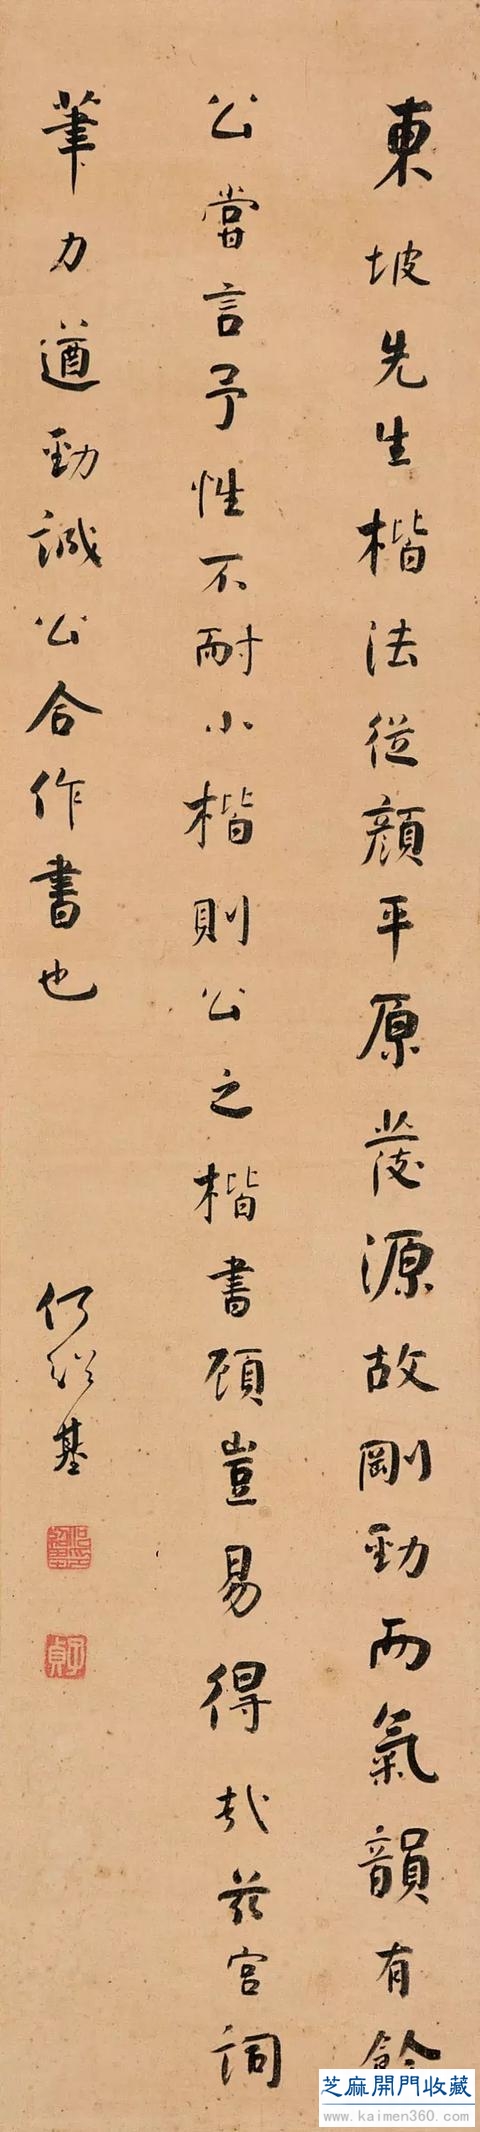 東坡先生楷法從顏平原發源故剛勁而氣韻有餘
公嘗言予性不耐小楷則公之楷書顧豈易得哉茲宮詞
筆力遒勁誠公合作書也
何紹基
子貞
芝麻開門收藏
www.kaimen360.com